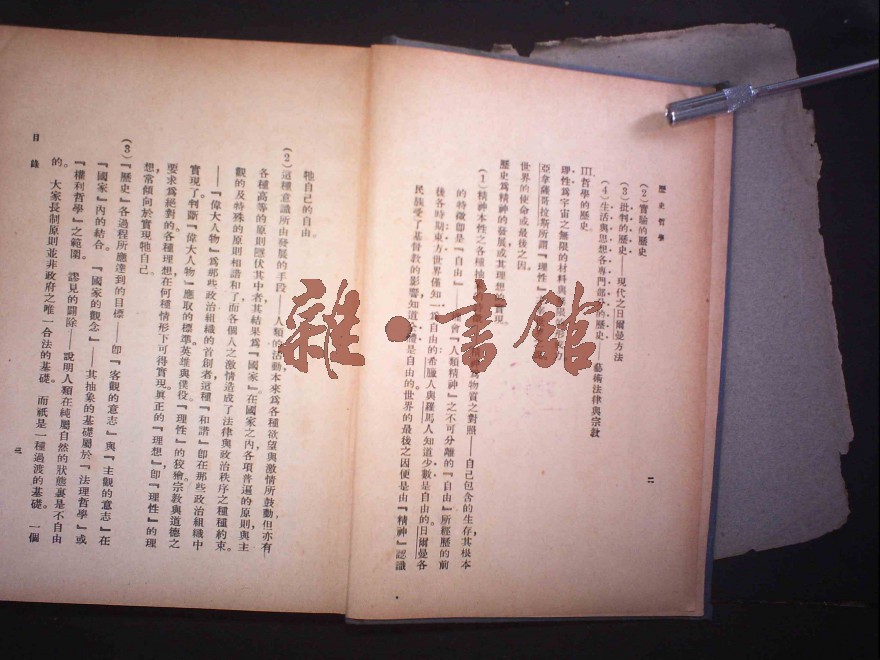 歷史哲學
二
(2)實驗的歷史
(3)批判的歷史——現代之日爾曼方法
(4)生活與思想各專門部門的歷史——藝術法律與宗教
III 哲學的歷史
理性爲宇宙之無限的材料與無限的
亞拿薩哥拉斯所謂『理性』
世界的使命或最後之因。
歷史爲精神的發展或其理想的實現。
(1)精神本性之各種抽 爲物質之對照——自己包含的生存,其根本
的特徵卽是『自由』—— 會『人類精神』之不可分離的『自由』所經歷的前
後各時期東方世界僅知一其自由的希臘人與羅馬人知道少數是自由的日爾曼各
民族受了基督教的影響知道全體是自由的。世界的最後之因便是由『精神』認識
牠自己的自由。
(2)這種意識所由發展的手段——人類的活動本來爲各種欲望與激情所鼓動但亦有
各種高等的原則壓伏其中者其結果爲『國家』在國家之內各項普遍的原則與主
觀的及特殊的原則相諧和了而各個人之激情造成了法律與政治秩序之種種約束。
——『偉大人物』爲那些政治組織的首創者這種『和諧』卽在那些政治組織中
實現了。判斷『偉大人物』應取的標準英雄與僕役。『理性』的狡獪宗教與道德之
要求爲絕對的。各種理想在何種情形下可得實現眞正的『理想』卽『理性』的理
想常傾向於實現牠自己。
(3)『歷史』各過程所應達到的目標——卽『客觀的意志』與『主觀的意志』在
『國家』內的結合。『國家的觀念』——其抽象的基礎屬於『法理哲學』或
『權利哲學』之範圍。謬見的闢除——說明人類在純屬自然的狀態裏是不自由
的。大家長制原則並非政府之唯一合法的基礎。而祇是一種過渡的基礎。一個
目錄
三
雜·書館